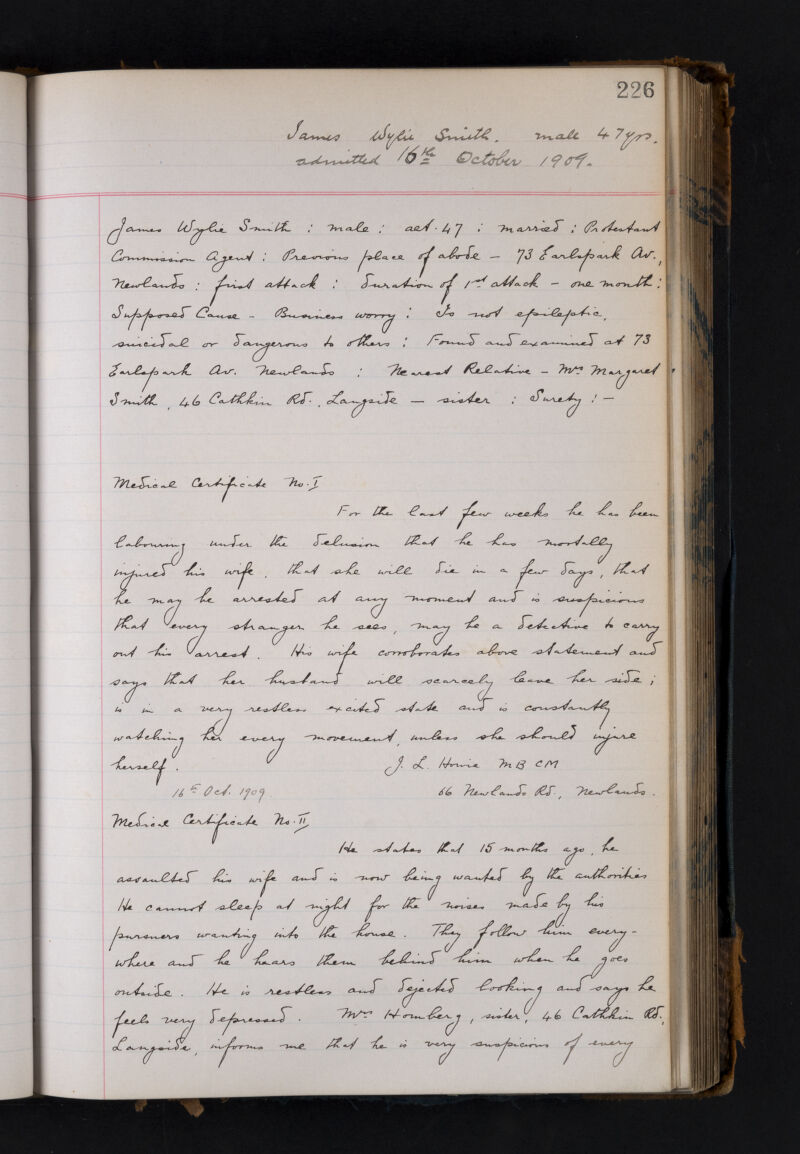 226
James Wylie Smith. male 47 yrs.
admitted 16th October 1909.
James Wylie Smith : male : aet. 47 : married : Protestant
Commission Agent : Previous place of abode - 73 Earlspark Av.,
Newlands : first attack : duration of 1st attack - one month :
Supposed Cause - Business worry : Is not epileptic,
suicidal or dangerous to others : Found and examined at 73
Earlspark Av. Newlands : Nearest Relative - Mrs Margaret
Smith, 46 Cathkin Rd., Langside - sister : Surety : -
Medical Certificate No. I
For the last few weeks he has been
labouring under the delusion that he has mortally
injured his wife, that she will die in a few days, that
he may be arrested at any moment and is suspicious
that every stranger he sees, may be a detective to carry
out his arrest. His wife corroborates above statement and
says that her husband will scarcely leave her side ;
is in a very restless excited state and is constantly
watching her every movement, unless she should injure
herself. J. L. Howie MB CM
16th Oct. 1909 66 Newlands Rd., Newlands.
Medical Certificate No. II
He states that 15 months ago, he
assaulted his wife and is now being wanted by the authorities
He cannot sleep at night for the noises made by his
pursuers wanting into the house. They follow him every-
where and he hears them behind him when he goes
outside. He is restless and dejected looking and says he
feels very depressed. Mrs Homberg, sister, 46 Cathkin Rd.,
Langside, informs me that he is very suspicious of every